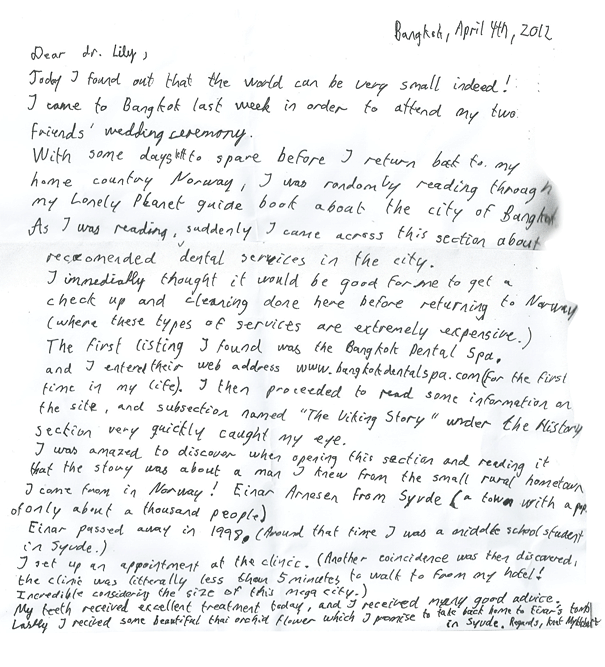 Bangkok, April 4th, 2012
Dear dr. Lily,
Today I found out that the world can be very small indeed!
I came to Bangkok last week in order to attend my two
friends' wedding ceremony.
With some days left to spare before I return back to my
home country Norway, I was randomly reading through
my Lonely Planet guide book about the city of Bangkok
As I was reading, suddenly I came across this section about
recommended dental services in the city.
I immediatly thought it would be good for me to get a
check up and cleaning done here before returning to Norway
(where these types of services are extremely expensive.)
The first listing I found was the Bangkok Dental Spa,
and I entered their web address www.bangkokdentalspa.com (for the first
time in my life). I then proceeded to read some information on
the site, and subsection named "The Viking Story" under the History
section very quictly caught my eye.
I was amazed to discover when opening this section and reading it
that the story was about a man I knew from the small rural hometown
I come from in Norway! Einar Arnesen from Syvde (a town with a pop.
of only about a thousand people)
Einar passed away in 1998. (Around that time I was a middle school student
in Syvde.)
I set up an appointment at the clinic. (Another coincidence was then discovered,
the clinic was litterally less than 5 minutes to walk to from my hotel!
Incredible considering the size of this mega city.)
My teeth received excellent treatment today, and I received many good advice.
Lastly I recived some beautiful thai orchid flower which I promise to take back home to Einar's tomb
in Syvde. Regards, Kent